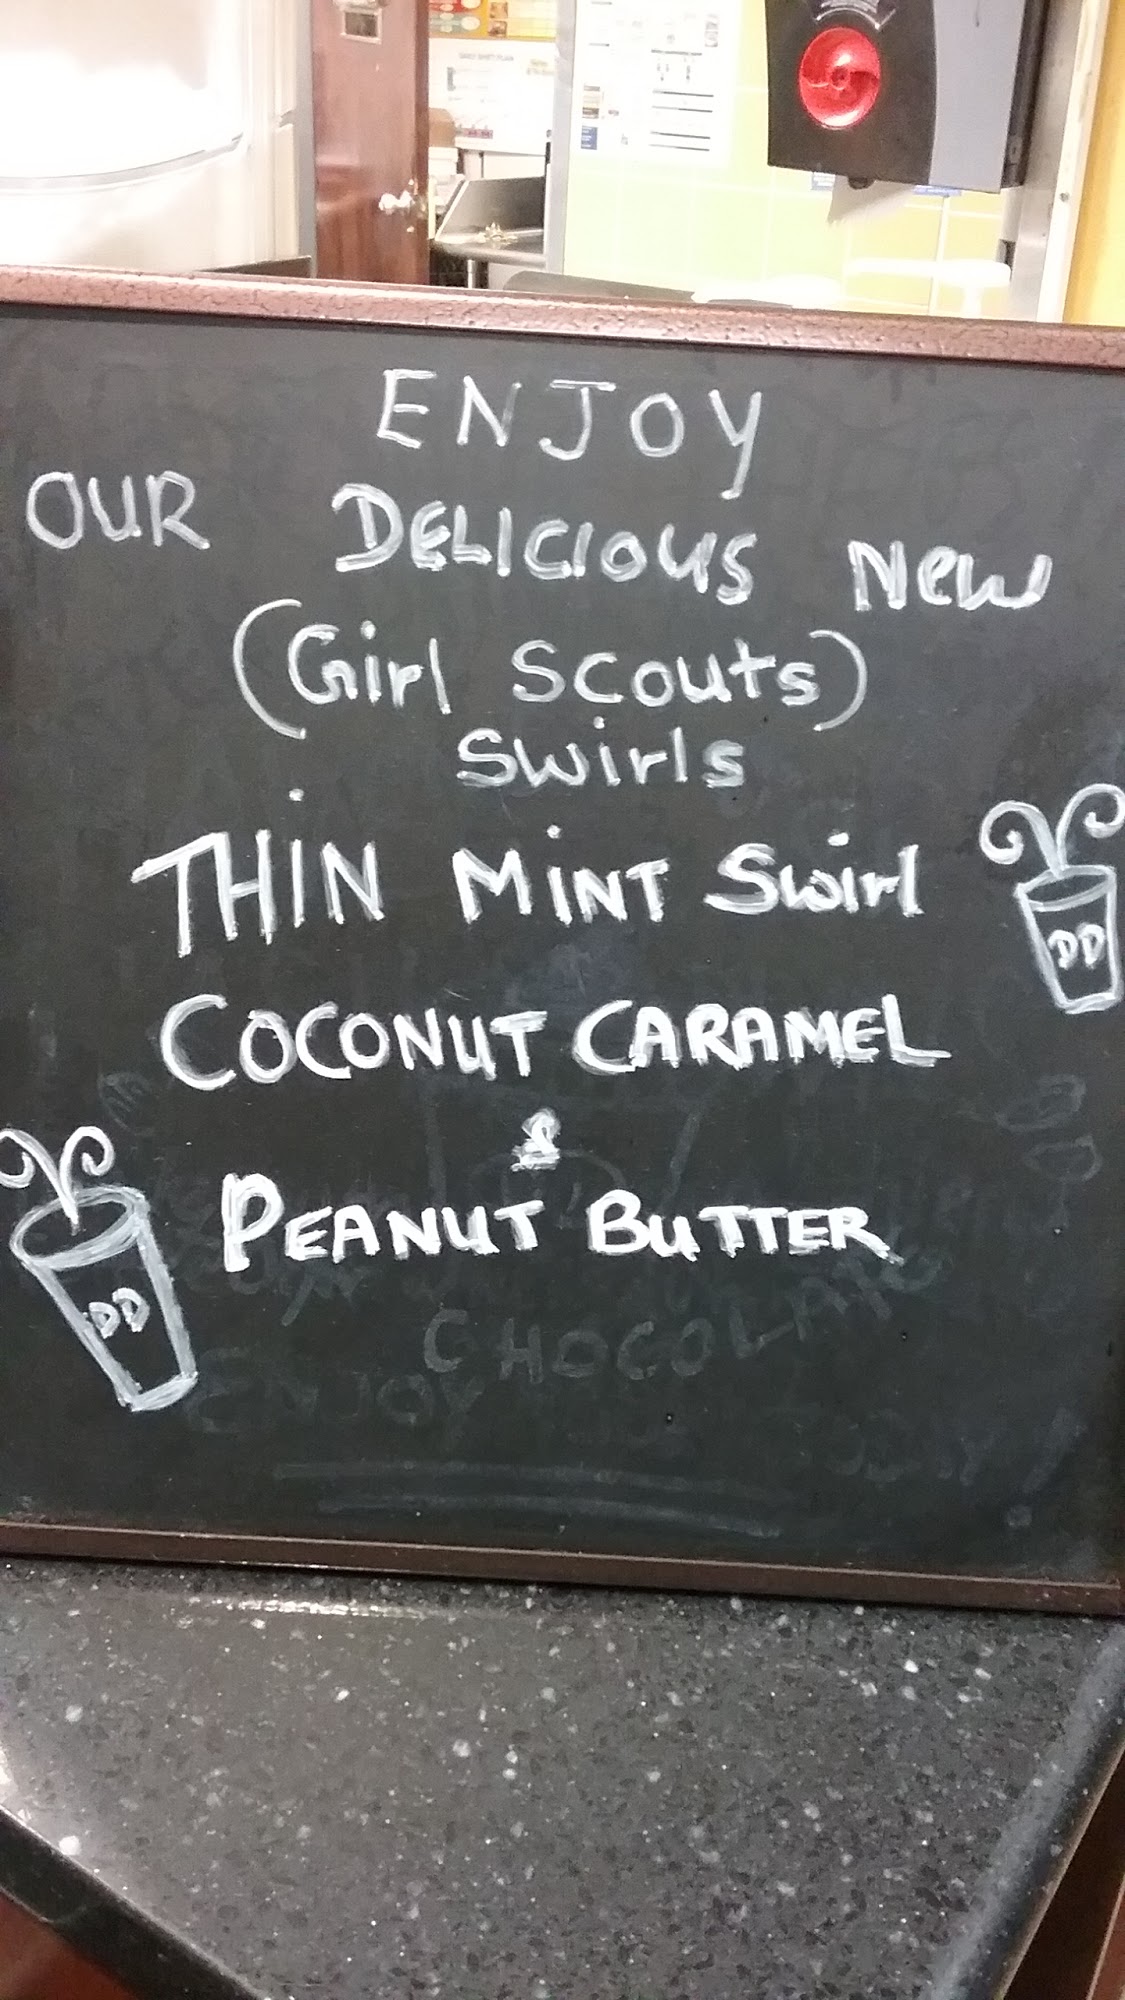 ENJOY
OUR DELICIOUS New
(Girl Scouts)
Swirls
THiN MiNT Swirl
DD
COCONUT CARAMEL
&
PEANUT BUTTER
DD
CHOCOLATE
ENJOY